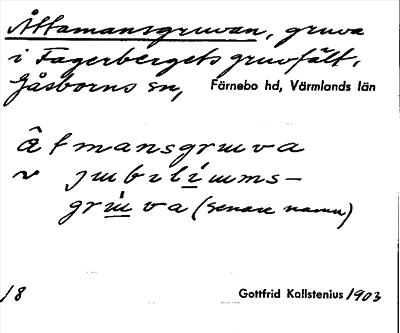 Åttamansgruvan, gruva
i Fagerbergets gruvfält,
Gåsborns sn, Färnebo hd, Värmlands län
åtmansgruva
~ jubilíumms-
gruva (senare namn)
18 Gottfrid Kallstenius 1903